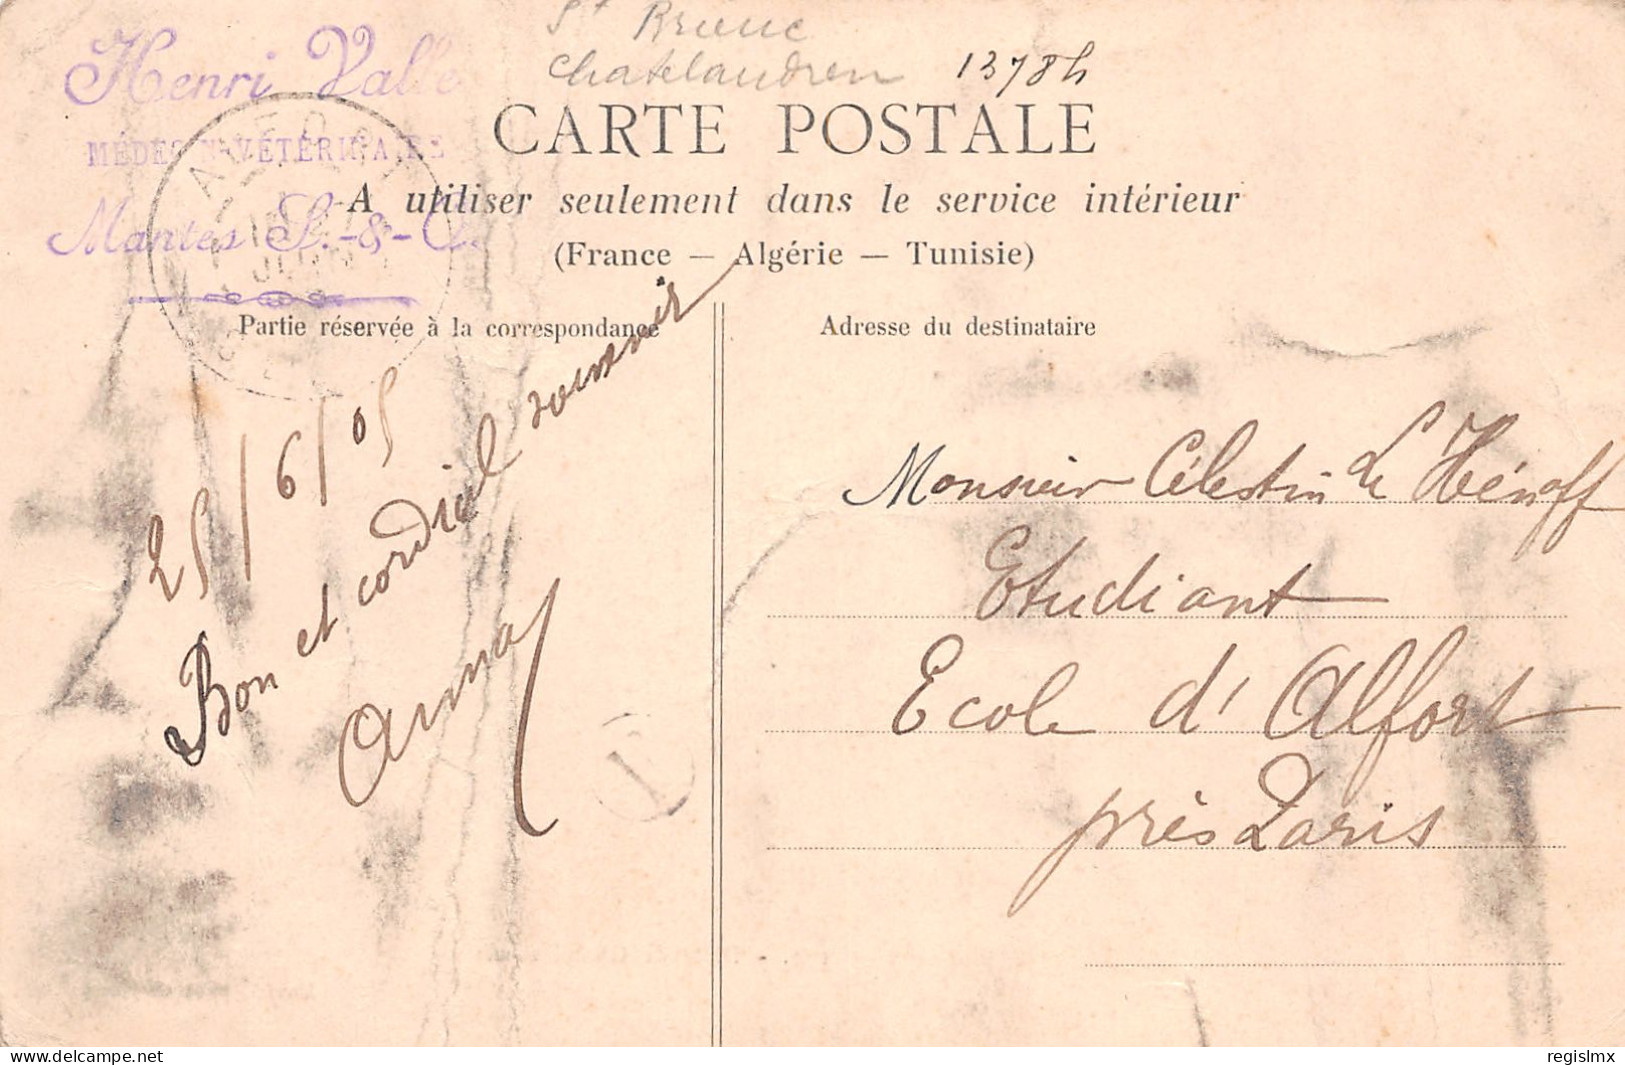 St Brieuc
Chatelaudren 1378h
Henri Valle
MÉDECIN-VÉTÉRINAIRE
Mantes S.-&-O.
CARTE POSTALE
A utiliser seulement dans le service intérieur
(France — Algérie — Tunisie)
Partie réservée à la correspondance
Adresse du destinataire
25/6/05
Bon et cordial souvenir
Monsieur Célestin Le Hénaff
Etudiant
Ecole d'Alfort
près Paris
delcampe.net
regislmx